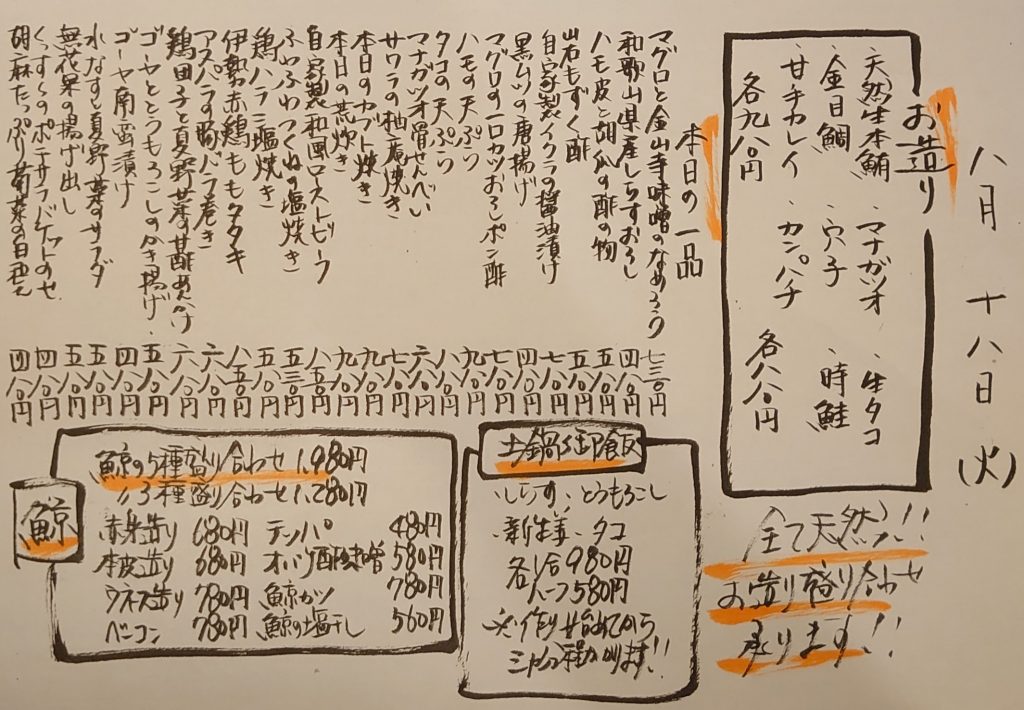 八月 十八日 (火)
お造り
、天然生本鮪 、マナガツオ 、生タコ
、金目鯛 、穴子 、時鮭
、甘手カレイ 、カンパチ
各九八〇円 各八八〇円
全て天然!!
お造り盛り合わせ
承ります!!
本日の一品
マグロと金山寺味噌のなめろう 七三〇円
和歌山県産しらすおろし 四八〇円
ハモ皮と胡瓜の酢の物 五八〇円
岩もずく酢 五八〇円
自家製イクラの醤油漬け 七八〇円
黒ムツの唐揚げ 四八〇円
マグロの一口カツおろしポン酢 七八〇円
ハモの天ぷら 九八〇円
タコの天ぷら 八八〇円
マナガツオ骨せんべい 六八〇円
サワラの柚庵焼き 七八〇円
本日のカブト焼き 九八〇円
本日の荒炊き 九八〇円
自家製和風ローストビーフ 八五〇円
ふわふわつくねの塩焼き 五三〇円
鶏ハラミ塩焼き 五八〇円
伊勢赤鶏ももタタキ 八五〇円
アスパラの豚バラ巻き 六八〇円
鶏団子と夏野菜の甘酢あんかけ 六八〇円
ゴーヤととうもろこしのかき揚げ 五八〇円
ゴーヤ南蛮漬け 四八〇円
水なすと夏野菜のサラダ 五八〇円
無花果の揚げ出し 五八〇円
のポテサラバゲットのせ 四八〇円
胡麻たっぷり菊菜の白和え 四八〇円
土鍋御飯
、しらす、とうもろこし
、新生姜、タコ
各1合980円
ハーフ580円
※作り始めてから
程かかります!!
鯨
鯨の5種盛り合わせ 1,980円
〃3種盛り合わせ 1,280円
赤身造り 680円 テッパ 480円
本皮造り 680円 オバケ酢味噌 580円
ウネス造り 780円 鯨カツ 780円
ベーコン 780円 鯨の塩干し 560円